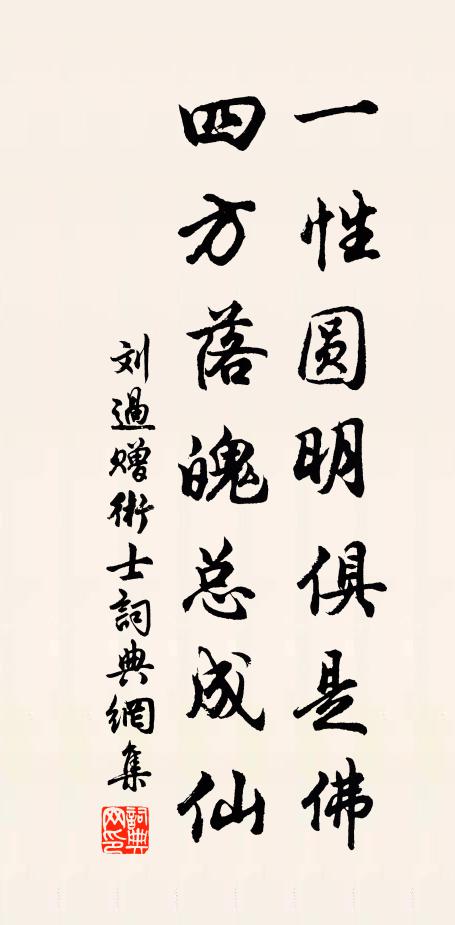 一性圆明俱是佛
四方落魄总成仙
刘過赠術士詞典網集
詞典網印